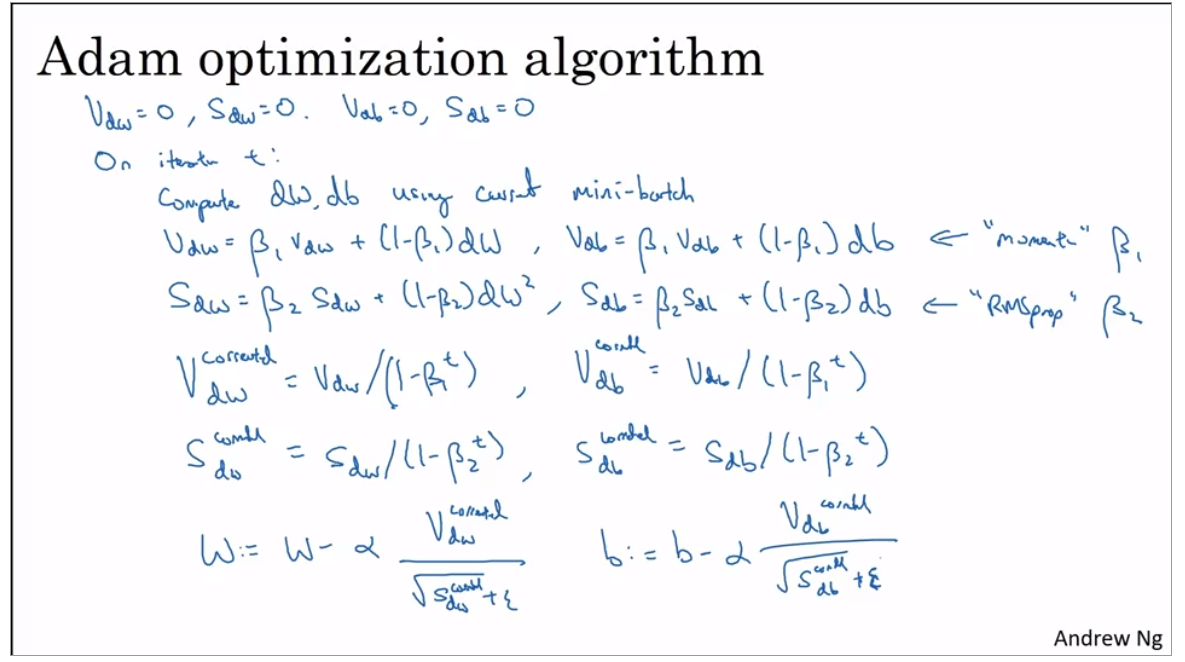 Adam optimization algorithm
V_dw = 0, S_dw = 0. V_db = 0, S_db = 0
On iteratn t:
Compute dW, db using current mini-batch
V_dw = β₁ V_dw + (1-β₁) dW , V_db = β₁ V_db + (1-β₁) db ← "moment" β₁
S_dw = β₂ S_dw + (1-β₂) dW² , S_db = β₂ S_db + (1-β₂) db ← "RMSprop" β₂
V_dw^corrected = V_dw / (1-β₁^t) , V_db^corrected = V_db / (1-β₁^t)
S_dw^corrected = S_dw / (1-β₂^t) , S_db^corrected = S_db / (1-β₂^t)
W := W - α V_dw^corrected / √S_dw^corrected + ε b := b - α V_db^corrected / √S_db^corrected + ε
Andrew Ng